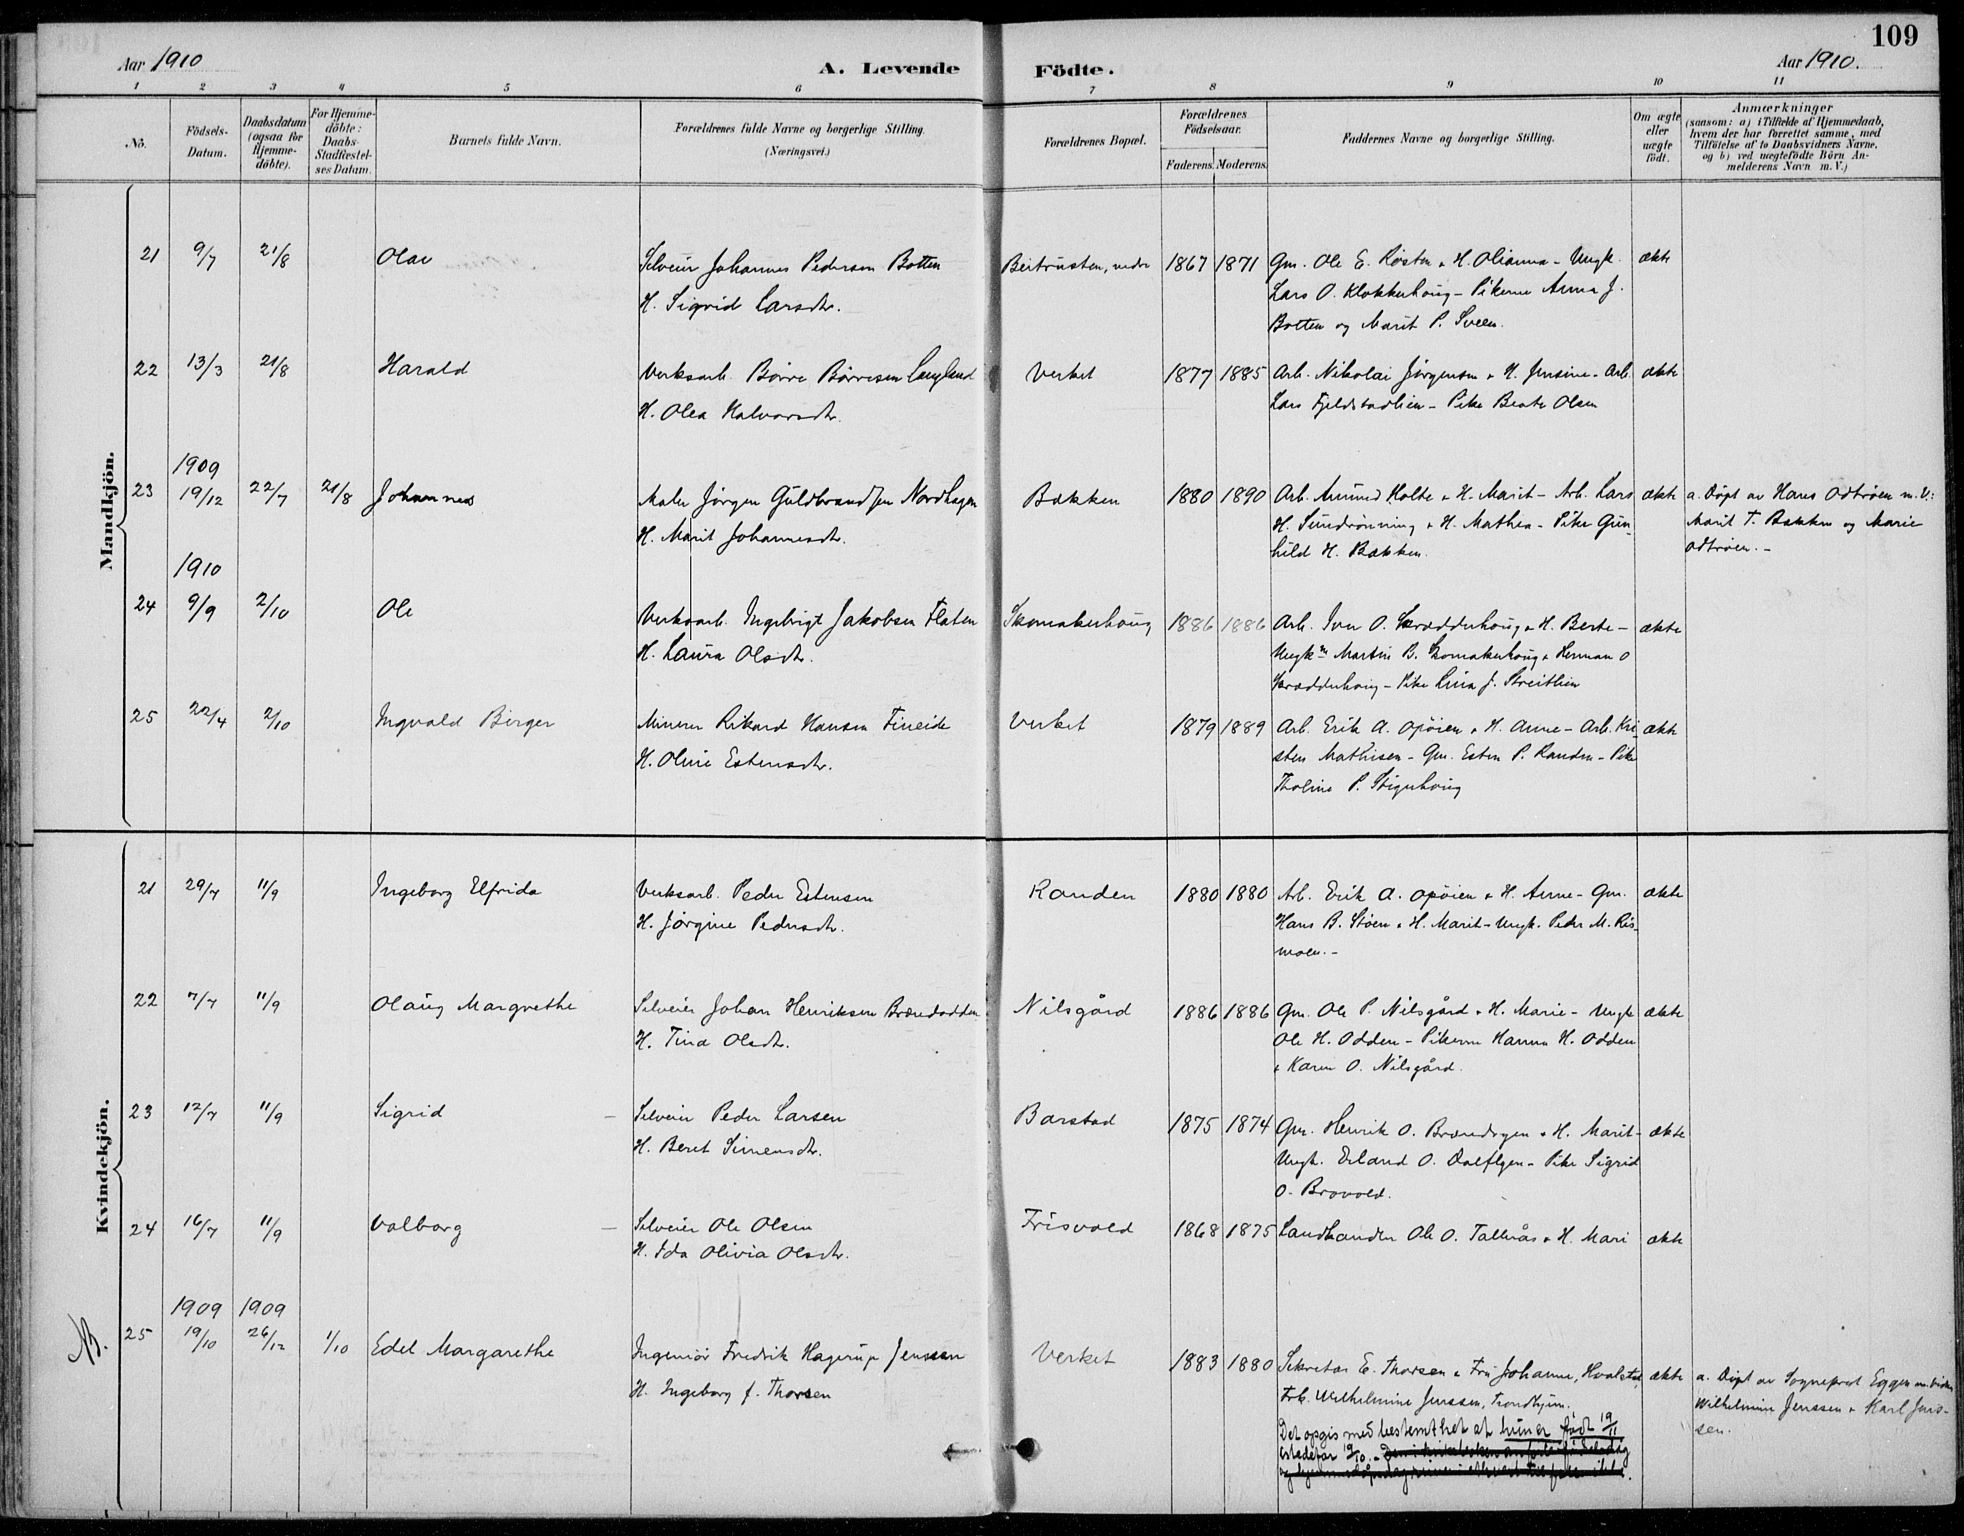 109
Aar 1910
A. Levende Födte.
Aar 1910.
1 2 3 4 5 6 7 8 9 10 11
No.
Födsels-Datum.
Daabsdatum (ogsaa for Hjemme-döbte).
For Hjemme-döbte: Daabs-Stadfæstel-ses Datum.
Barnets fulde Navn.
Forældrenes fulde Navne og borgerlige Stilling. (Næringsvei.)
Forældrenes Bopæl.
Forældrenes Födselsaar.
Faderens. Moderens.
Faddernes Navne og borgerlige Stilling.
Om ægte eller uægte födt.
Anmærkninger
(saasom: a) i Tilfælde af Hjemmedaab,
hvem der har forrettet samme, med
Tilföielse af to Daabsvidners Navne,
og b) ved uægtefödte Börn An-
melderens Navn m.V.)
Mandkjön.
21 9/7 21/8 Olav Selveier Johannes Pedersen Botten Beitrusten, nedre 1867 1871 Gm. Ole E. Rösten + H. Olianna - Ungk. ækte
H. Sigrid Larsdtr. Lars O. Klokkerhoug - Pikerne Anna J.
Botten og Marit P. Sveen.
22 13/3 21/8 Harald Verksarb. Börre Börresen Langland Verket 1877 1885 Arb. Nikolai Jörgensen + H. Jensine - Arb. ækte
H. Olea Halvorsdtr. Lars Fjeldstadlien - Pike Beate Olsen
1909
23 19/12 22/7 21/8 Johannes Maler Jörgen Guldbrandsen Nordhagen Bakken 1880 1890 Arb. Amund Holte + H. Marit - Arb. Lars ækte a. Döpt av Hans Odtröen m. V.:
H. Marit Johannesdtr. H. Sundrönning + H. Mathea - Pike Gun- Marit T. Bakken og Marie
hild H. Bakken. Odtröen. -
1910
24 9/9 2/10 Ole Verksarb. Ingebrigt Jakobsen Flaten Skomakerhoug 1886 1886 Arb. Iver O. Skrædderhoug + H. Berte - ækte
H. Laura Olsdtr. Ungkm Martin B. Skomakerhoug + Herman O
Skrædderhoug - Pike Lina J. Streitlien
25 22/4 2/10 Ingvald Birger Minerer Rikard Hansen Fineide Verket 1879 1889 Arb. Erik A. Opöien + H. Anne - Arb. Kri- ækte
H. Oline Estensdtr. sten Mathisen - Gm. Esten P. Randen - Pike
Tholine P. Stigerhoug
Kvindekjön.
21 29/7 11/9 Ingeborg Elfrida Verksarb. Peder Estensen Randen 1880 1880 Arb. Erik A. Opöien + H. Anne - Gm. ækte
H. Jörgine Pedersdtr. Hans B. Stöen + H. Marit - Ungk. Peder M. Ris-
moen. -
22 7/7 11/9 Olaug Margrethe Selveier Johan Henriksen Brændodden Nilsgård 1886 1886 Gm. Ole P. Nilsgård + H. Marie - Ungk ækte
H. Tina Olsdtr. Ole H. Odden - Pikerne Hanna H. Odden
+ Karen O. Nilsgård.
23 12/7 11/9 Sigrid - Selveier Peder Larsen Barstad 1875 1874 Gm. Henrik O. Brændryen + H. Marit - ækte
H. Beret Simensdtr. Ungk. Erland O. Dalflyen - Pike Sigrid
O. Brovold.
24 16/7 11/9 Valborg - Selveier Ole Olsen Frisvold 1868 1875 Landhandler Ole O. Tallerås + H. Mari ækte
H. Ida Olivia Olsdtr.
1909 1909
NB. 25 19/10 26/12 1/10 Edel Margarethe Ingeniör Fredrik Hagerup Jenssen Verket 1883 1880 Sekretær E. Thorsen + Fru Johanne, Hvalstad, ækte a. Döpt av Sogneprest Eggen m. Vidner
H. Ingeborg f. Thorsen Frk. Wilhelmine Jenssen, Trondhjem. Wilhelmine Jenssen + Karl Jens-
sen.
Det opgis med bestemthet at hun er född 19/11
istedetfor 19/10. -